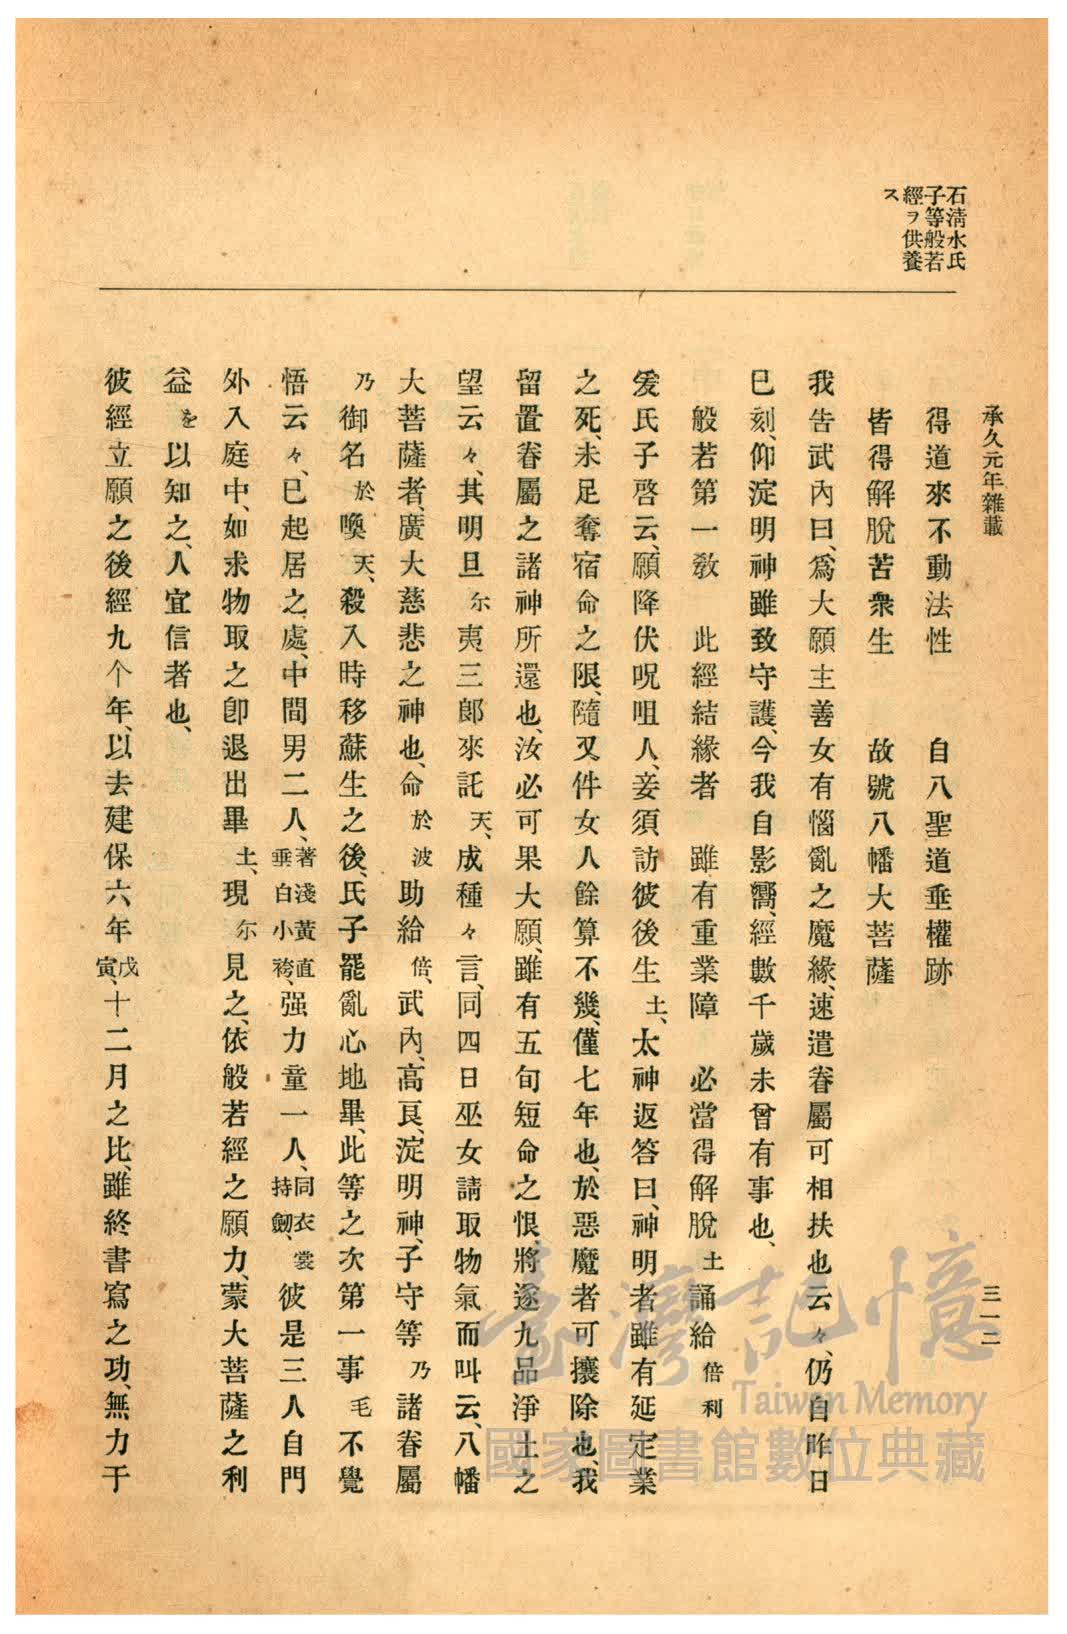 石淸水氏
子等般若
經ヲ供養
ス
承久元年雜載
三一二
得道來不動法性　自八聖道垂權跡
皆得解脫苦衆生　故號八幡大菩薩
我告武內曰、爲大願主善女有惱亂之魔緣、速遣眷屬可相扶也云々、仍自昨日
巳刻、仰淀明神雖致守護、今我自影嚮、經數千歲未曾有事也、
般若第一教　此經結緣者　雖有重業障　必當得解脫土誦給倍利
爰氏子啓云、願降伏呪咀人、妾須訪彼後生土、太神返答曰、神明者雖有延定業
之死、未足奪宿命之限、隨又件女人餘算不幾、僅七年也、於惡魔者可攘除也、我
留置眷屬之諸神所還也、汝必可果大願、雖有五旬短命之恨、將遂九品淨土之
望云々、其明旦尓夷三郎來託天、成種々言、同四日巫女請取物氣而叫云、八幡
大菩薩者、廣大慈悲之神也、命於波助給倍、武內、高良、淀明神、子守等乃諸眷屬
乃御名於喚天、殺入時移蘇生之後、氏子罷亂心地畢、此等之次第一事毛不覺
悟云々、已起居之處、中間男二人、著淺黃直垂白小袴、强力童一人、同衣裳持劒、彼是三人自門
外入庭中、如求物取之卽退出畢土、現尓見之、依般若經之願力、蒙大菩薩之利
益を以知之、人宜信者也、
彼經立願之後經九个年、以去建保六年戊寅、十二月之比、雖終書寫之功、無力于
臺灣記憶
Taiwan Memory
國家圖書館數位典藏